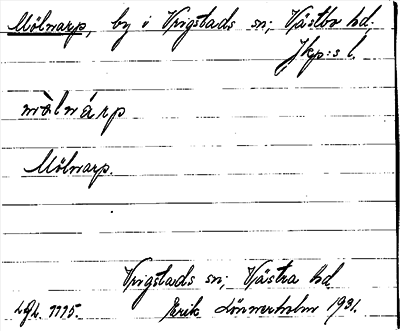 Mölnarp, by i Vrigstads sn; Västbo hd;
Jkp:s l.
mölnárp
Mölnarp.
Vrigstads sn; Västra hd
Erik Lönnerholm 1931.